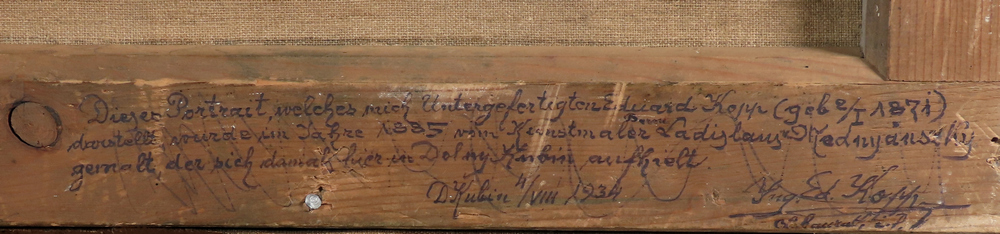 Dieses Portrait, welches mich Untergefertigten Eduard Kopp (geb 2/I 1871)
Baron
darstellt wurde im Jahre 1885 vom Kunstmaler Ladislaus Mednyanszky
gemalt, der sich damals hier in Dolny Kubin aufhielt.
D Kubin 4/VIII 1934
Ing. Ed. Kopp